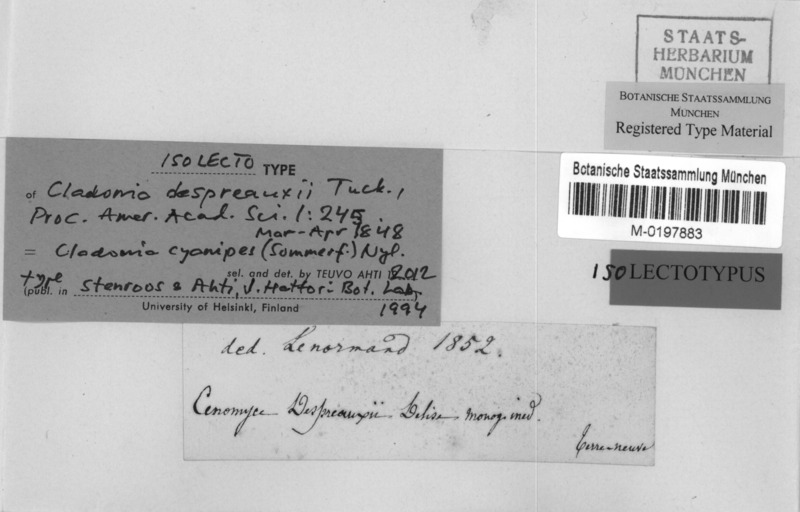 STAATS-
HERBARIUM
MÜNCHEN
BOTANISCHE STAATSSAMMLUNG
MÜNCHEN
Registered Type Material
Botanische Staatssammlung München
M-0197883
ISO LECTOTYPUS
ISOLECTO TYPE
of Cladonia despreauxii Tuck.,
Proc. Amer. Acad. Sci. 1: 245.
Mar-Apr 1848
= Cladonia cyanipes (Sommerf.) Nyl.
sel. and det. by TEUVO AHTI 2012
type
(publ. in Stenroos & Ahti, J. Hattori Bot. Lab.
University of Helsinki, Finland 1994
ded. Lenormand 1852.
Cenomyce Despreauxii Delise monog. ined.
Terre-neuve